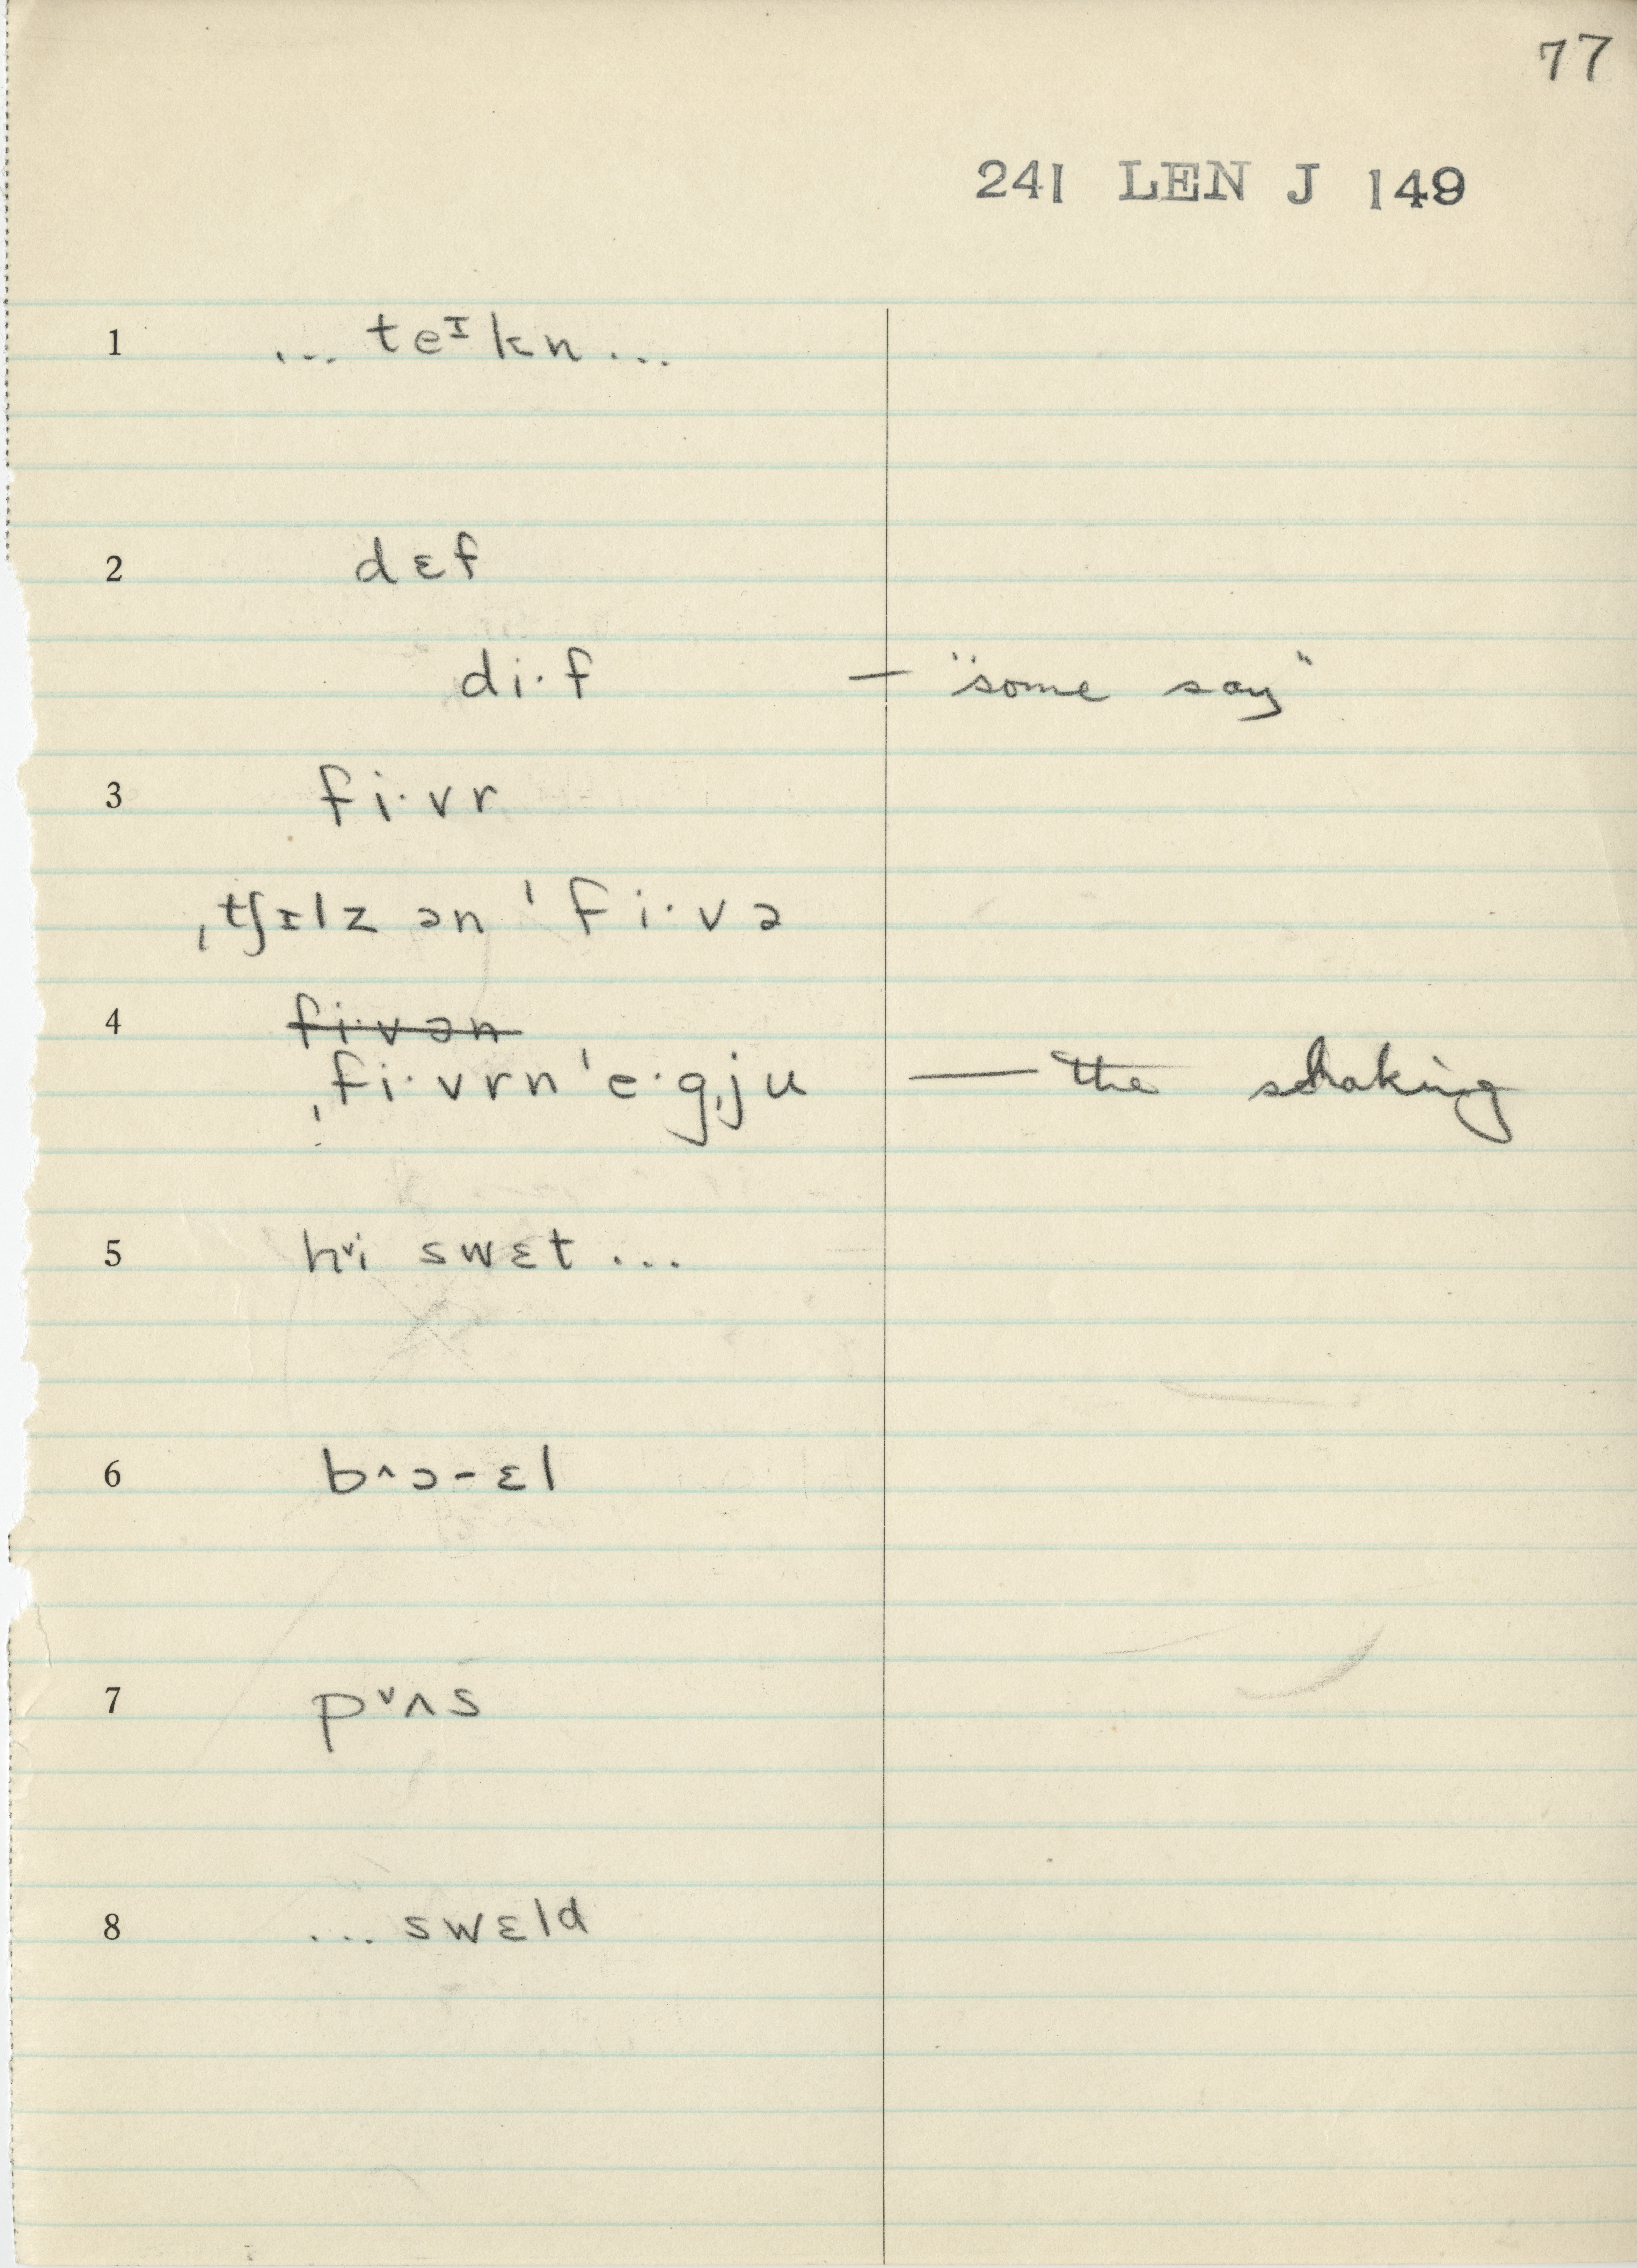 77
241 LEN J 149
1 ... teᶦkn ...
2 dɛf
di·f — "some say"
3 fi·vr
ˌtʃɪlz ən ˈfi·və
4 fi·vən
ˌfi·vrnˈe·gˌju — the shaking
5 h˅i swɛt ...
6 b^ɔ-ɛl
7 p˅ʌs
8 ... swɛld